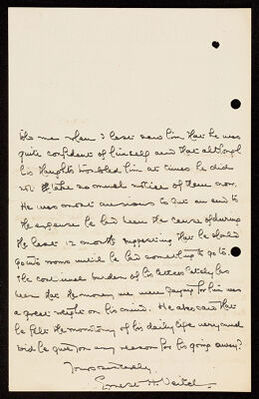 the me when I last saw him that he was
quite confident of himself and that although
his thoughts troubled him at times he did
not take so much notice of them now.
He was most anxious to put an end to
the expense he had been the cause of during
the last 12 months suggesting that he should
go into rooms until he had something to go to.
The continual burden of his letters lately has
been that the money we were paying for him was
a great weight on his mind. He also said that
he felt the monotony of his daily life very much
Did he give you any reason for his going away?
Yours sincerely,
Ernest H.